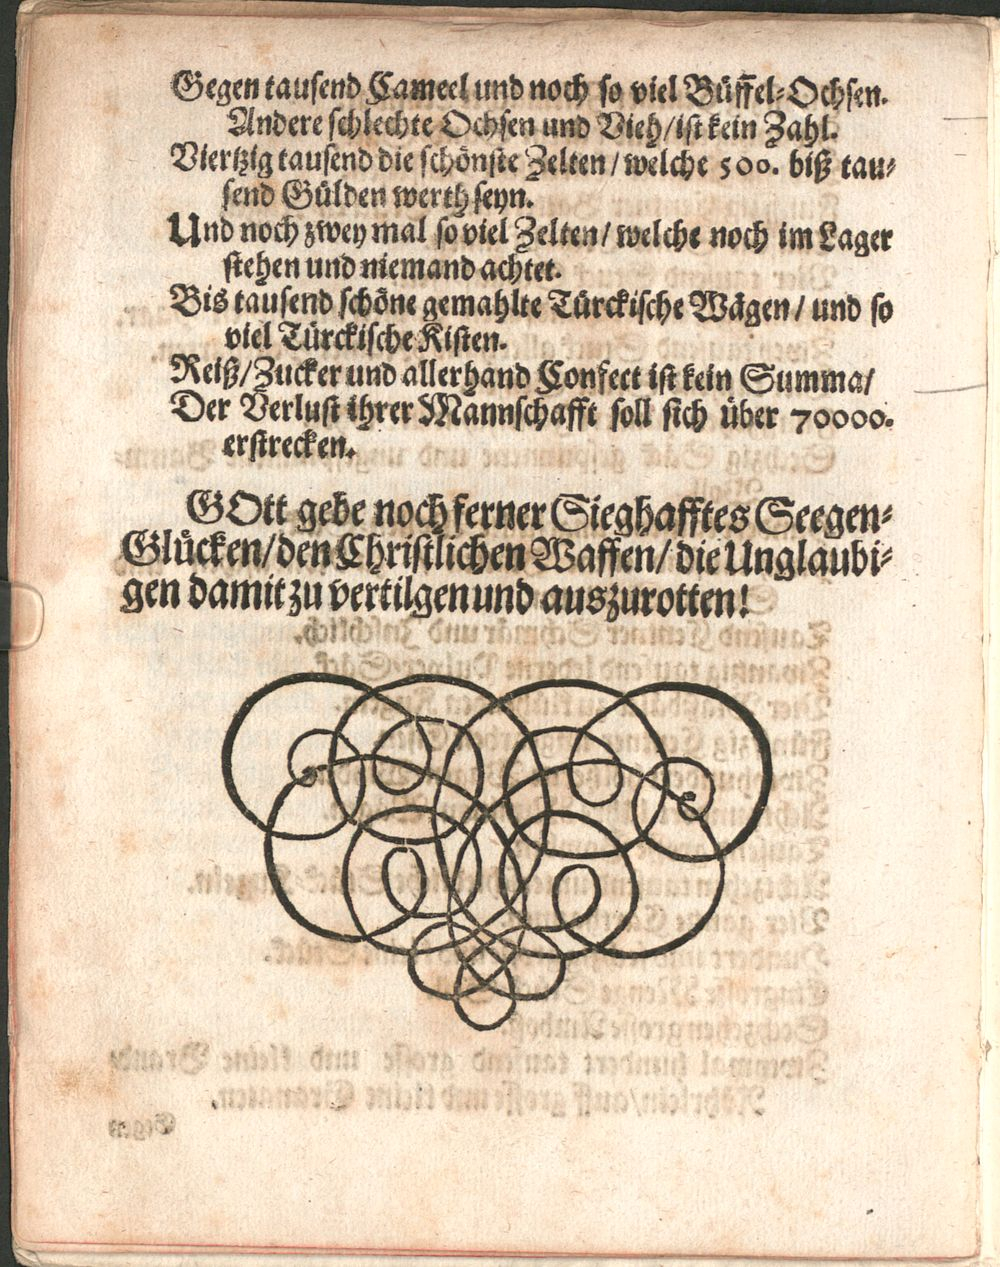 Gegen tausend Cameel und noch so viel Büffel-Ochsen.
Andere schlechte Ochsen und Vieh/ist kein Zahl.
Viertzig tausend die schönste Zelten/welche 500. biß tau-
send Gülden werth seyn.
Und noch zwey mal so viel Zelten/welche noch im Lager
stehen und niemand achtet.
Bis tausend schöne gemahlte Türckische Wägen/und so
viel Türckische Kisten.
Reiß/Zucker und allerhand Confect ist kein Summa/
Der Verlust ihrer Mannschafft soll sich über 70000.
erstrecken.
GOtt gebe noch ferner Sieghafftes Seegen-
Glücken/den Christlichen Waffen/die Unglaubi-
gen damit zu vertilgen und auszurotten!